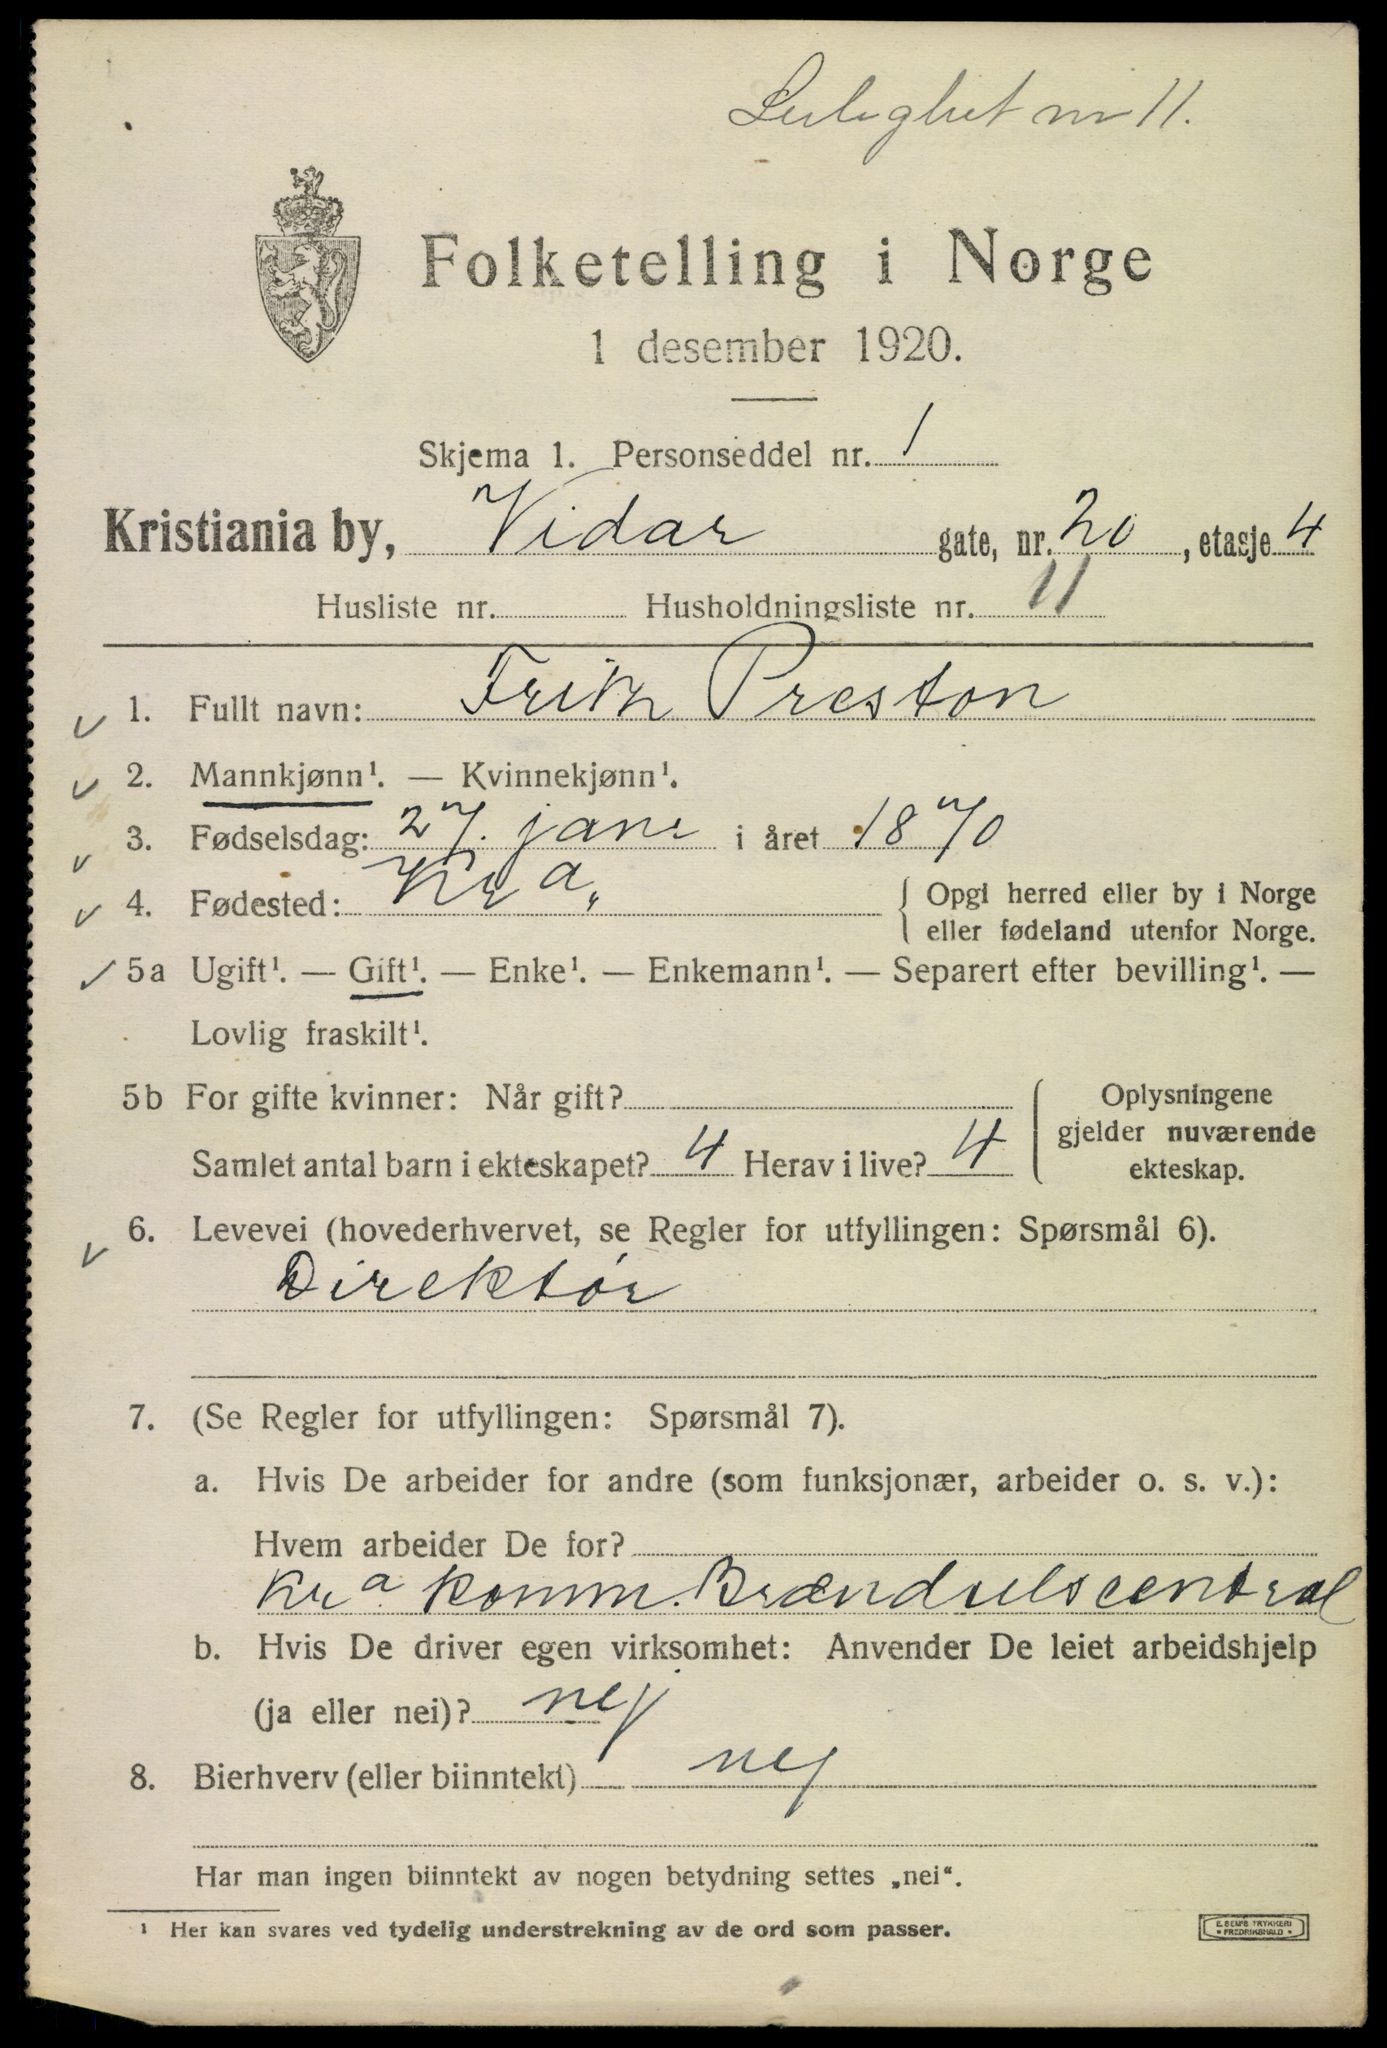 Leilighet nr 11.
Folketelling i Norge
1 desember 1920.
Skjema 1. Personseddel nr. 1
Kristiania by, Vidar gate, nr. 20, etasje 4
Husliste nr. Husholdningsliste nr. 11
1. Fullt navn: Fritz Preston
2. Mannkjønn¹. — Kvinnekjønn¹.
3. Fødselsdag: 27. janr i året 1870
4. Fødested: Kr a.
Opgi herred eller by i Norge
eller fødeland utenfor Norge.
5a Ugift¹. — Gift¹. — Enke¹. — Enkemann¹. — Separert efter bevilling¹. —
Lovlig fraskilt¹.
5b For gifte kvinner: Når gift?
Samlet antal barn i ekteskapet? 4 Herav i live? 4
Oplysningene
gjelder nuværende
ekteskap.
6. Levevei (hovederhvervet, se Regler for utfyllingen: Spørsmål 6).
Direktör
7. (Se Regler for utfyllingen: Spørsmål 7).
a. Hvis De arbeider for andre (som funksjonær, arbeider o. s. v.):
Hvem arbeider De for?
Kr a Komm. Brændselscentral
b. Hvis De driver egen virksomhet: Anvender De leiet arbeidshjelp
(ja eller nei)? nej
8. Bierhverv (eller biinntekt) nej
Har man ingen biinntekt av nogen betydning settes „nei“.
¹ Her kan svares ved tydelig understrekning av de ord som passer.
E. SEM'S TRYKKERI
• FREDRIKSHALD •